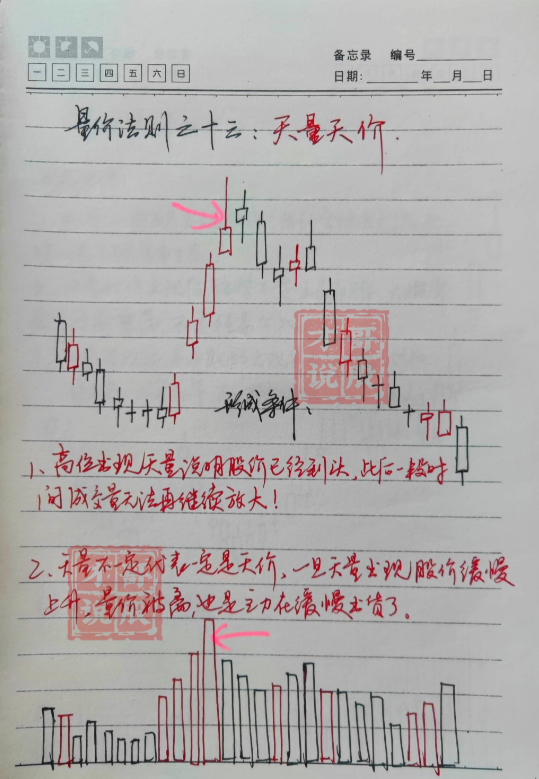 备忘录 编号
一 二 三 四 五 六 日
日期: 年 月 日
量价法则之十三：天量天价.
形成条件：
1、高位出现天量说明股价已经到头，此后一段时
间成交量无法再继续放大！
2、天量不一定代表一定是天价，一旦天量出现股价缓慢
上升，量价背离，也是主力在缓慢出货了。